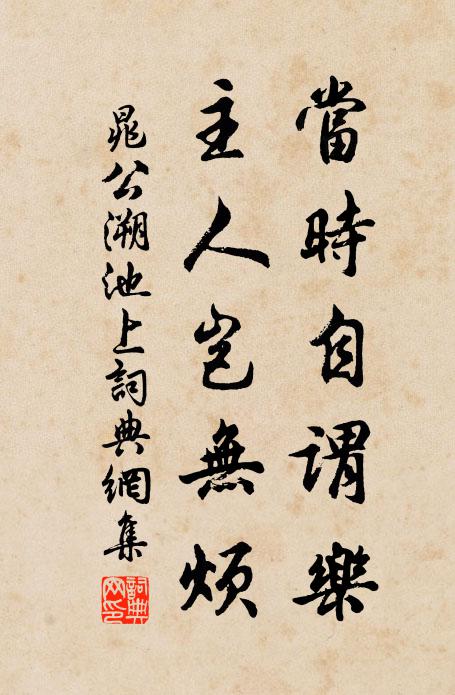 當時自謂樂
主人豈無煩
晁公溯池上詞典網集
詞典網印